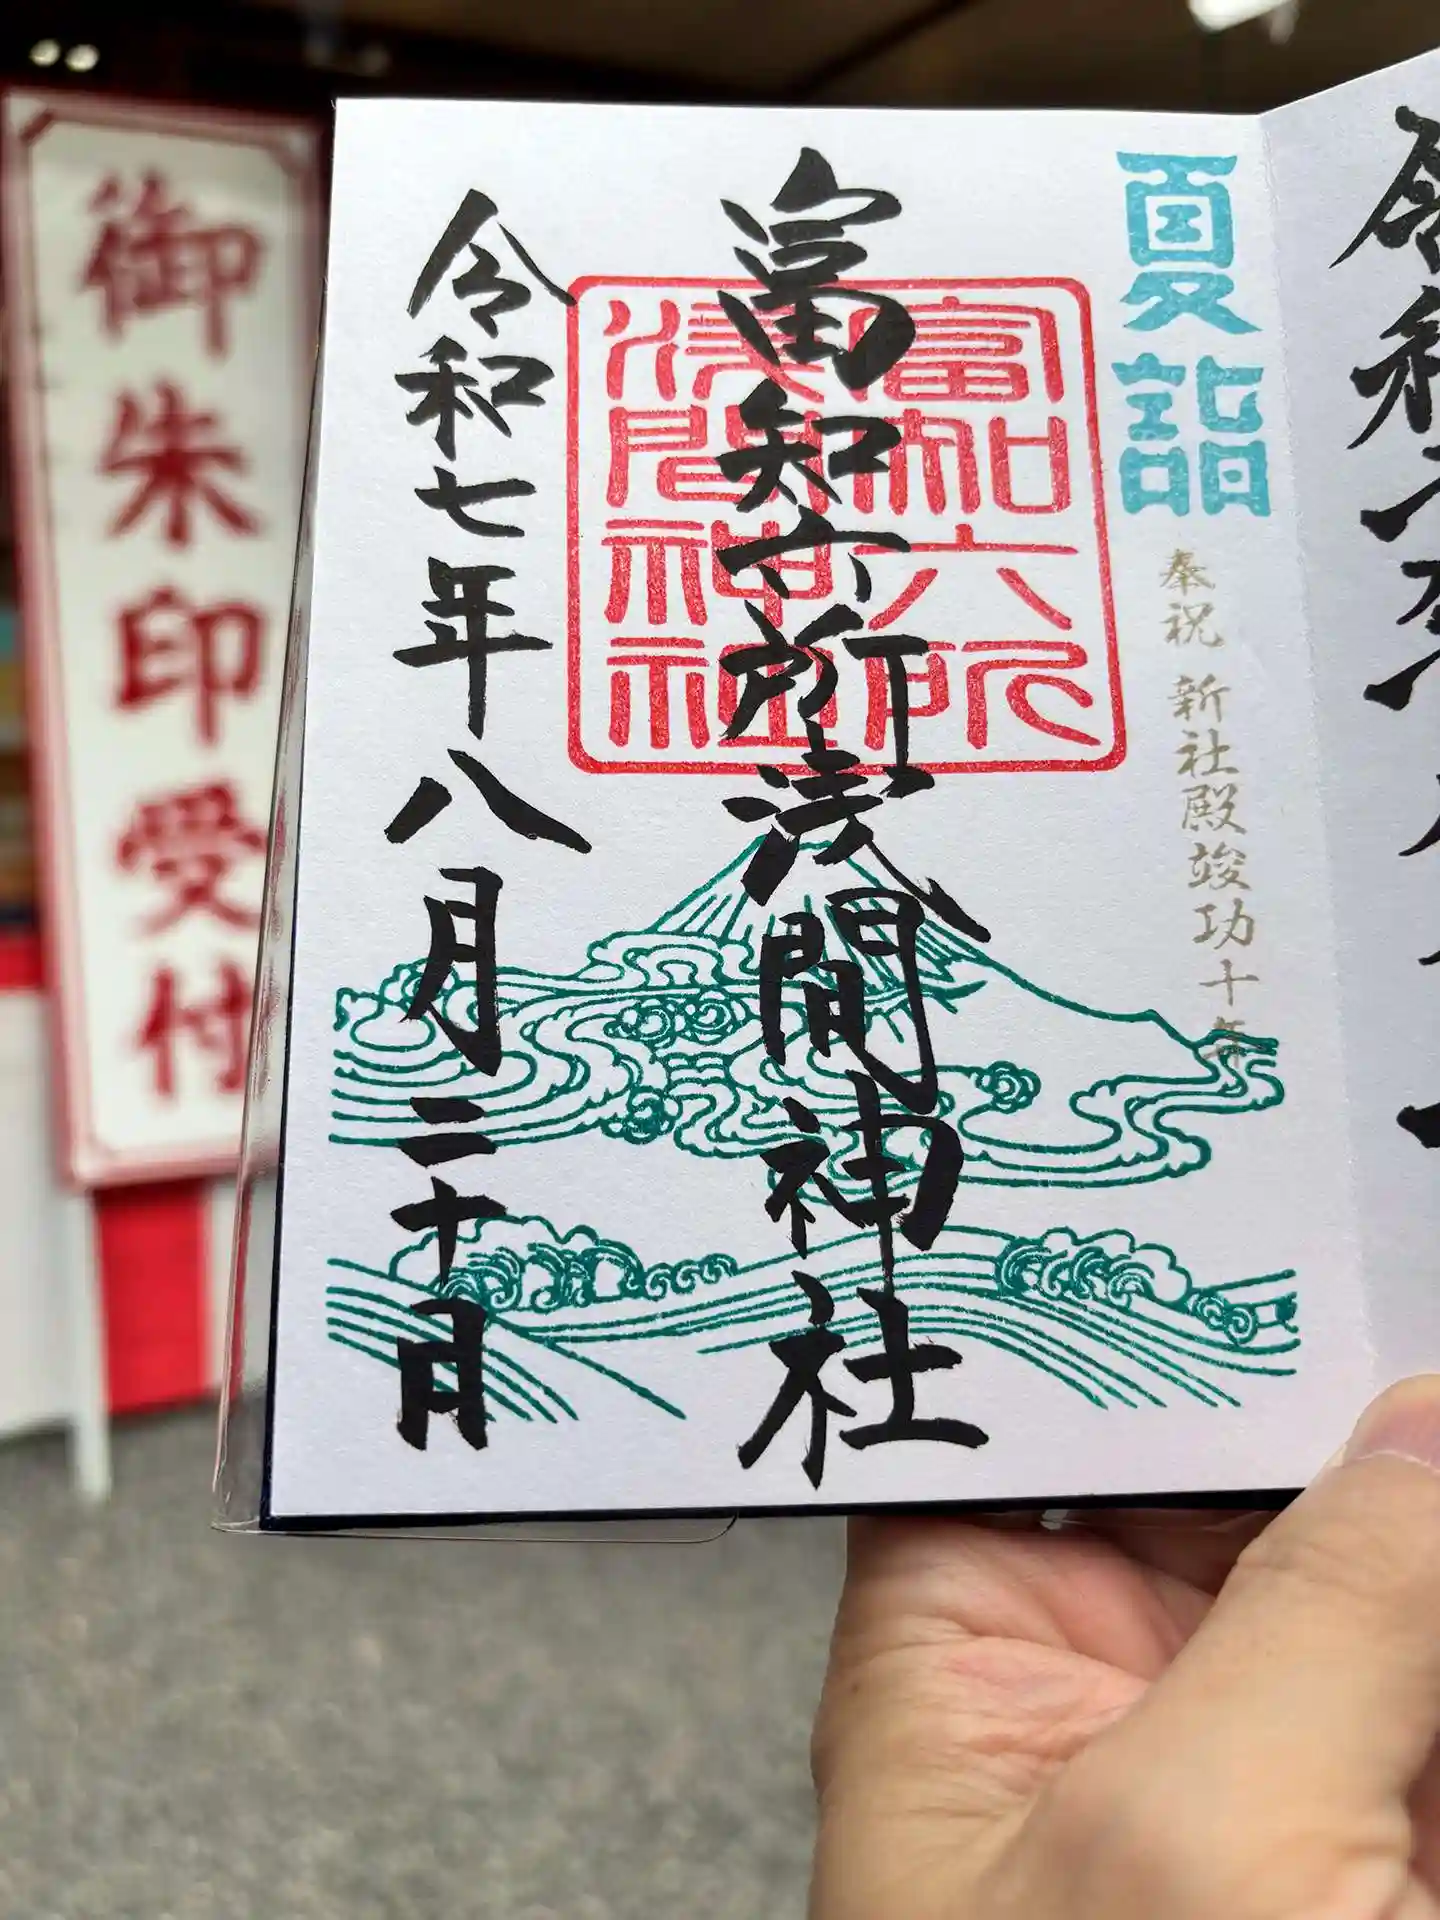 夏詣
奉祝 新社殿竣功十年
富知六所浅間神社
富知六所
浅間神社
令和七年八月三十日
御朱印受付